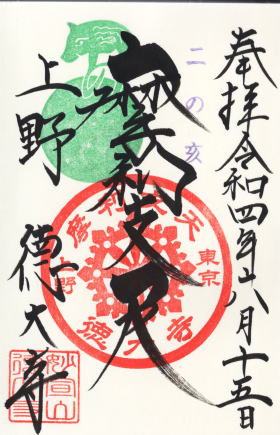 奉拝 令和四年八月十五日
二の亥
摩利支天
上野
徳大寺
摩利支天
東京
上野
徳大寺
妙宣山
徳大寺